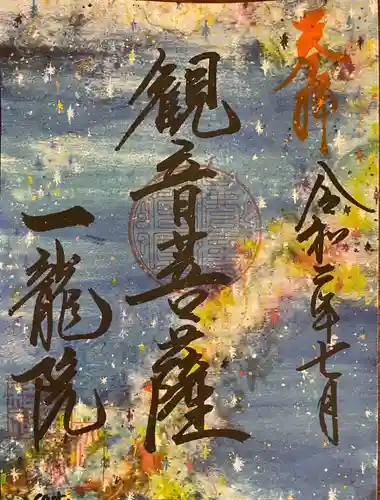 奉拝
令和二年七月
観音菩薩
一龍院